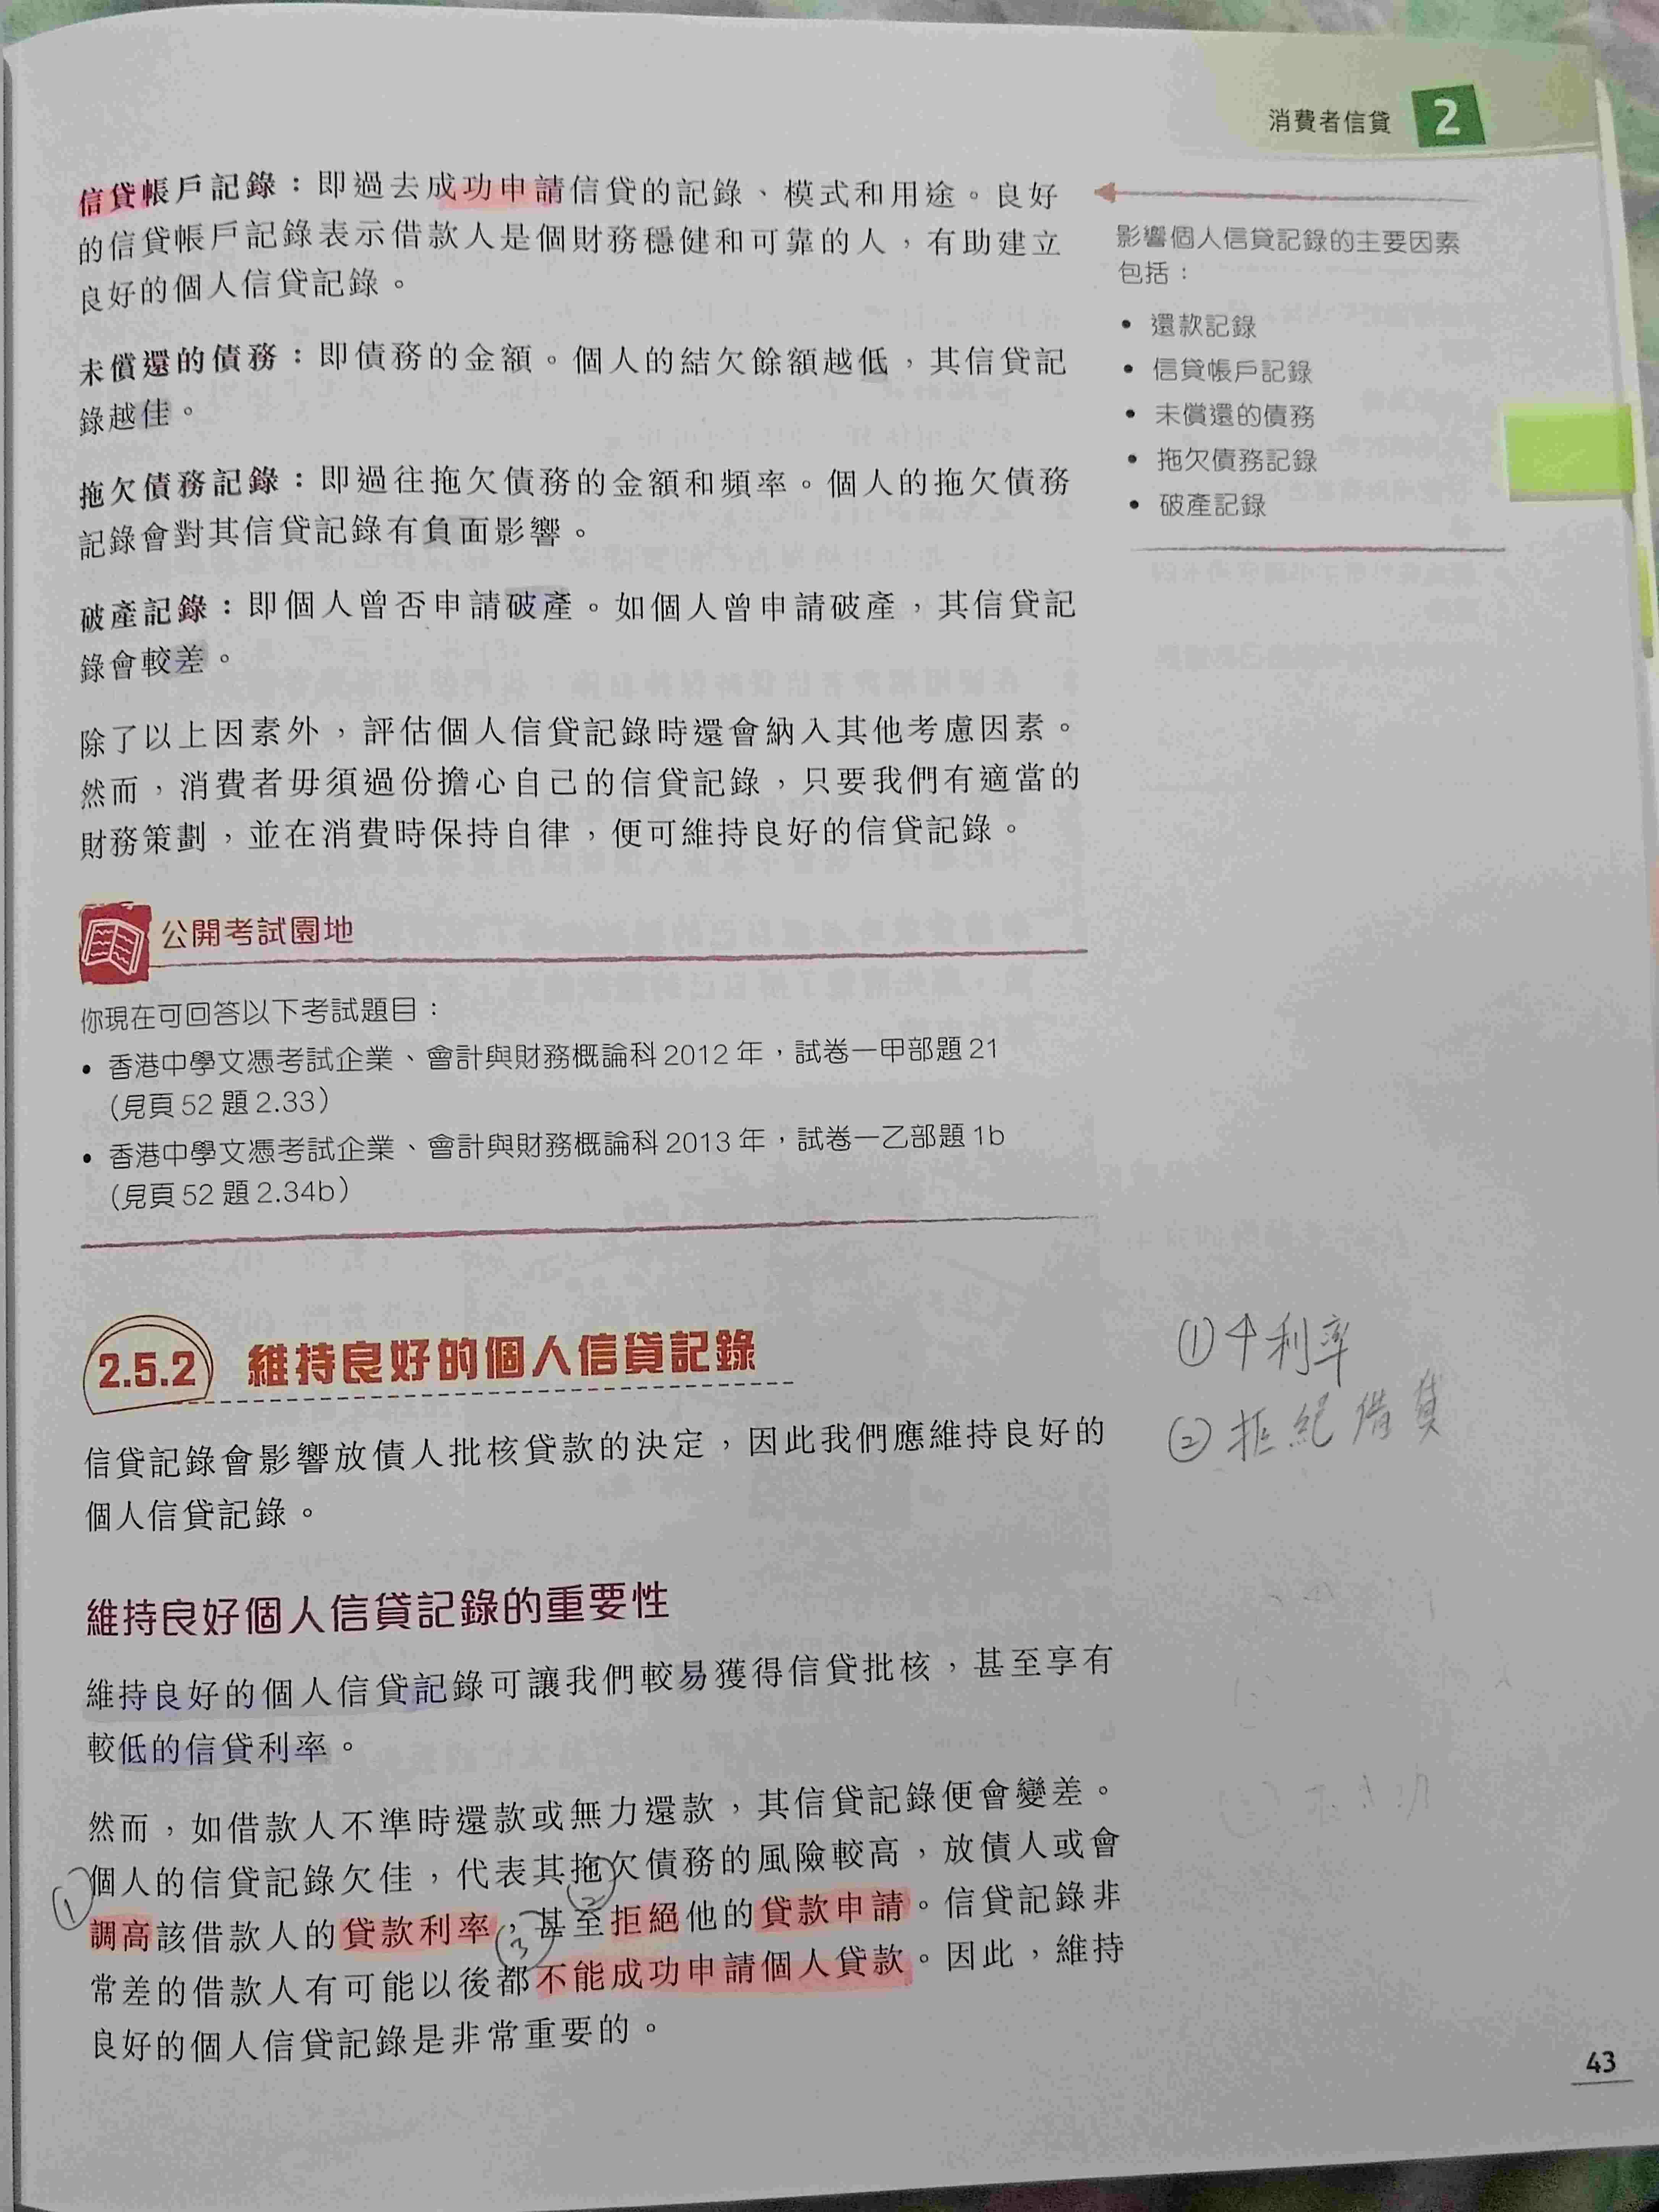 消費者信貸 2
信貸帳戶記錄：即過去成功申請信貸的記錄、模式和用途。良好
的信貸帳戶記錄表示借款人是個財務穩健和可靠的人，有助建立
良好的個人信貸記錄。
未償還的債務：即債務的金額。個人的結欠餘額越低，其信貸記
錄越佳。
拖欠債務記錄：即過往拖欠債務的金額和頻率。個人的拖欠債務
記錄會對其信貸記錄有負面影響。
破產記錄：即個人曾否申請破產。如個人曾申請破產，其信貸記
錄會較差。
除了以上因素外，評估個人信貸記錄時還會納入其他考慮因素。
然而，消費者毋須過份擔心自己的信貸記錄，只要我們有適當的
財務策劃，並在消費時保持自律，便可維持良好的信貸記錄。
影響個人信貸記錄的主要因素
包括：
• 還款記錄
• 信貸帳戶記錄
• 未償還的債務
• 拖欠債務記錄
• 破產記錄
公開考試園地
你現在可回答以下考試題目：
• 香港中學文憑考試企業、會計與財務概論科 2012 年，試卷一甲部題 21
（見頁 52 題 2.33）
• 香港中學文憑考試企業、會計與財務概論科 2013 年，試卷一乙部題 1b
（見頁 52 題 2.34b）
2.5.2 維持良好的個人信貸記錄
信貸記錄會影響放債人批核貸款的決定，因此我們應維持良好的
個人信貸記錄。
①↑利率
②拒絕借貸
維持良好個人信貸記錄的重要性
維持良好的個人信貸記錄可讓我們較易獲得信貸批核，甚至享有
較低的信貸利率。
然而，如借款人不準時還款或無力還款，其信貸記錄便會變差。
個人的信貸記錄欠佳，代表其拖欠債務的風險較高，放債人或會
①調高該借款人的貸款利率，②甚至拒絕他的貸款申請。信貸記錄非
常差的借款人有可能以後都③不能成功申請個人貸款。因此，維持
良好的個人信貸記錄是非常重要的。
43